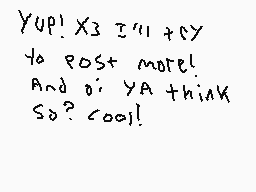 Yup! X3 I'll try
to post more!
And oi YA think
so? cool!